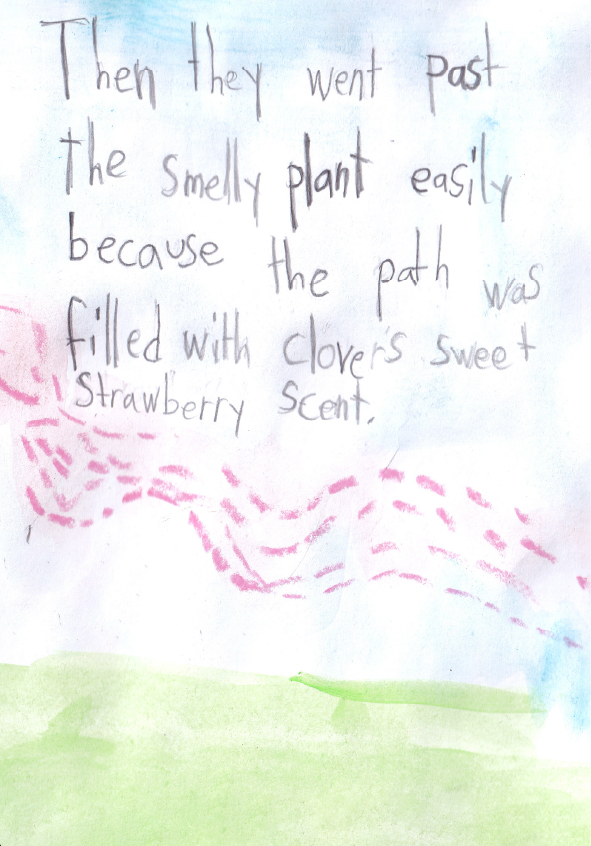 Then they went past
the smelly plant easily
because the path was
filled with clover's sweet
strawberry scent.